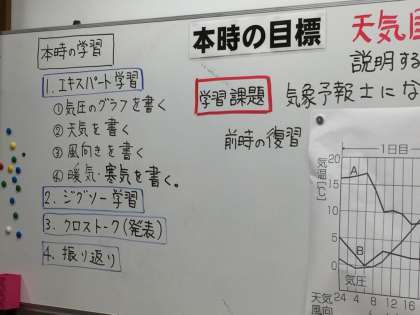 本時の学習
1. エキスパート学習
①気圧のグラフを書く
②天気を書く
③風向きを書く
④暖気・寒気を書く。
2. ジグソー学習
3. クロストーク(発表)
4. 振り返り
本時の目標
天気
説明する
学習課題
気象予報士にな
前時の復習
1日目
気温[℃]
20
15
10
5
0
A
B
気圧
24 4 8 12 16
天気
風向